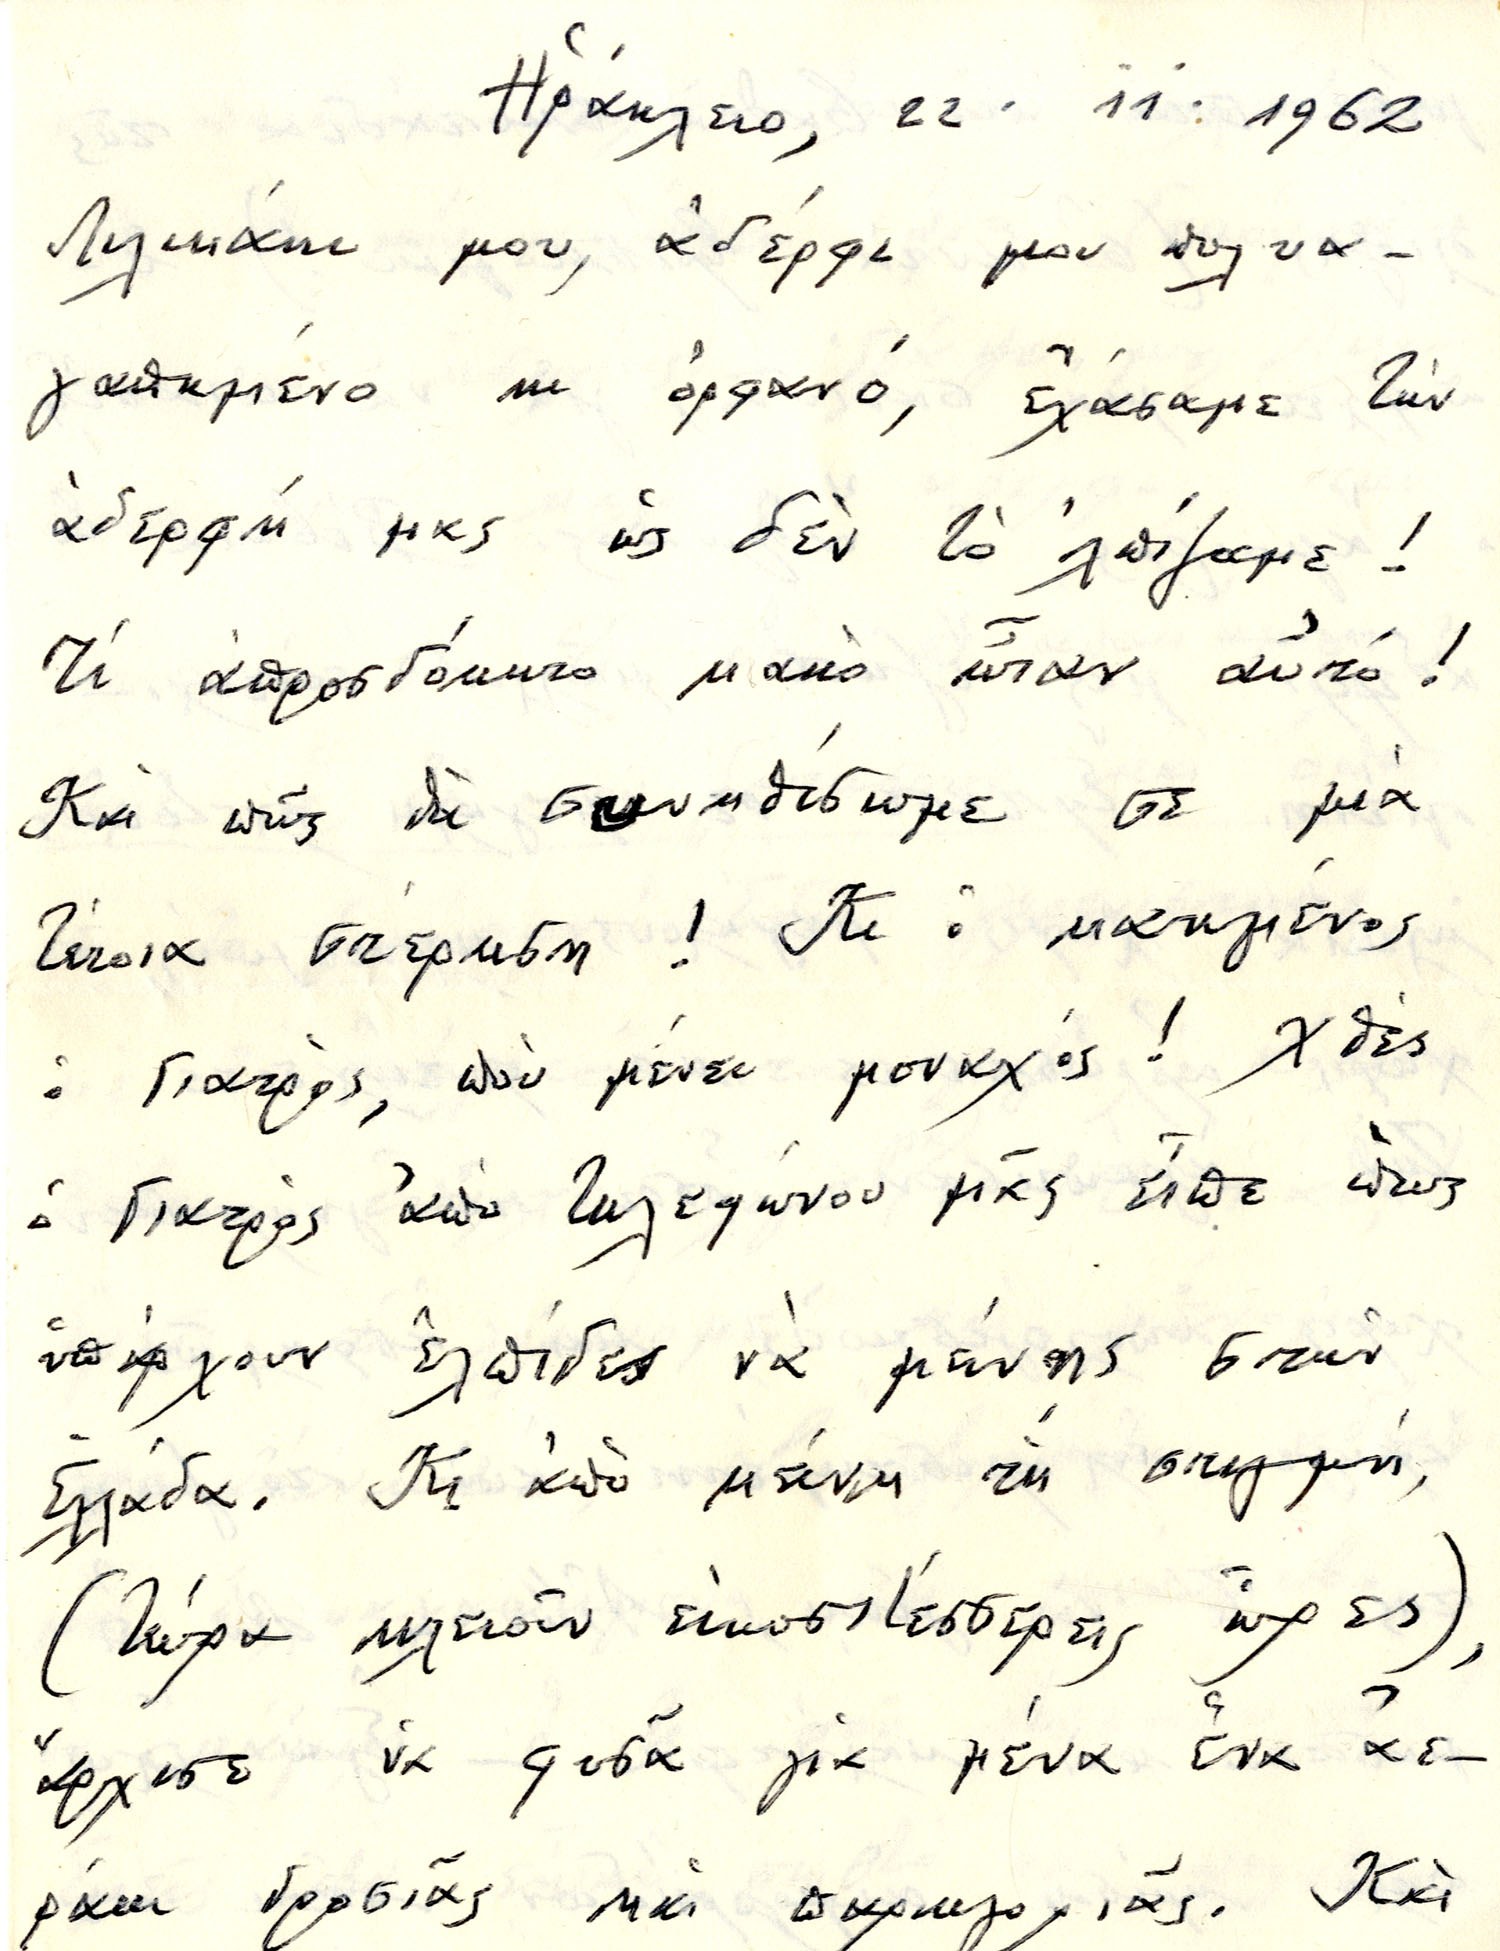 Ἡράκλειο, 22. 11. 1962
Λιλικάκι μου, ἀδέρφι μου πολυα-
γαπημένο κι ὀρφανό, ἐχάσαμε τὴν
ἀδερφή μας ὡς δὲν τὸ 'λπίζαμε!
Τί ἀπροσδόκητο κακὸ ἦταν αὐτό!
Καὶ πῶς θὰ συνηθίσωμε σὲ μιὰ
τέτοια στέρηση! Κι ὁ καημένος
ὁ Γιατρός, ποὺ μένει μοναχός! Χθὲς
ὁ Γιατρὸς ἀπὸ τηλεφώνου μᾶς εἶπε πὼς
ὑπάρχουν ἐλπίδες νὰ μείνης στὴν
Ἑλλάδα. Κι ἀπὸ κείνη τὴ στιγμή,
(τώρα κλειοῦν εἰκοσιτέσσερεις ὧρες),
ἄρχισε νὰ φυσᾶ γιὰ μένα ἕνα ἀε-
ράκι δροσιᾶς καὶ παρηγοριᾶς. Καὶ